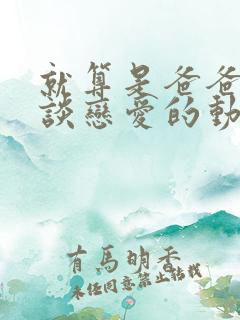 就算是爸爸
談戀愛的動
有馬明香
未经同意禁止转载